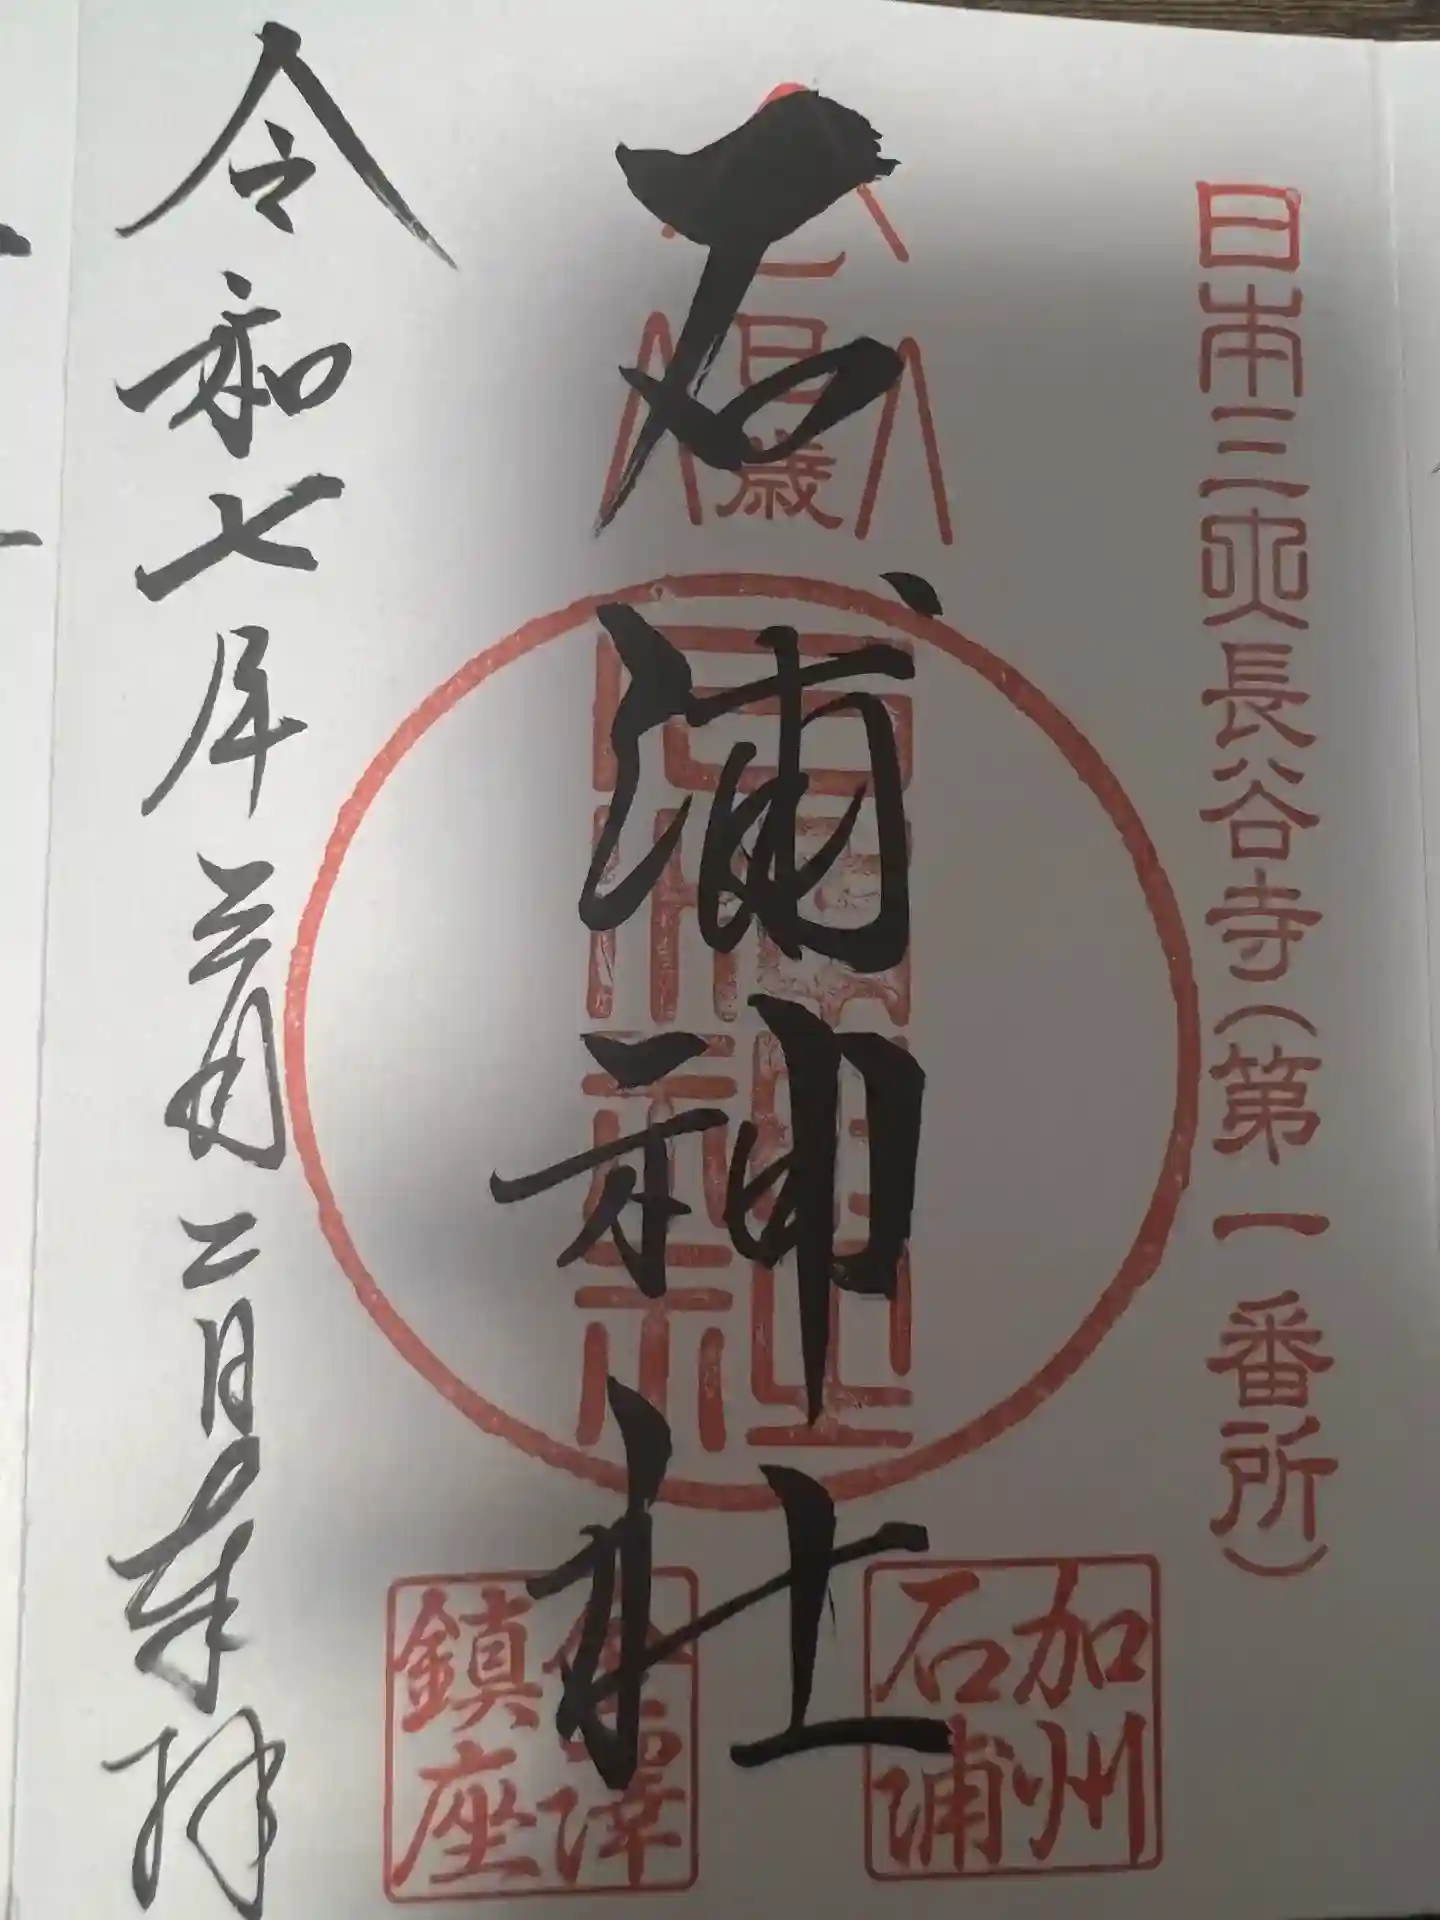 日本三大長谷寺(第一番所)
石浦神社
巳歳
石浦神社
加州
石浦
金澤
鎮座
令和七年三月二日奉拝